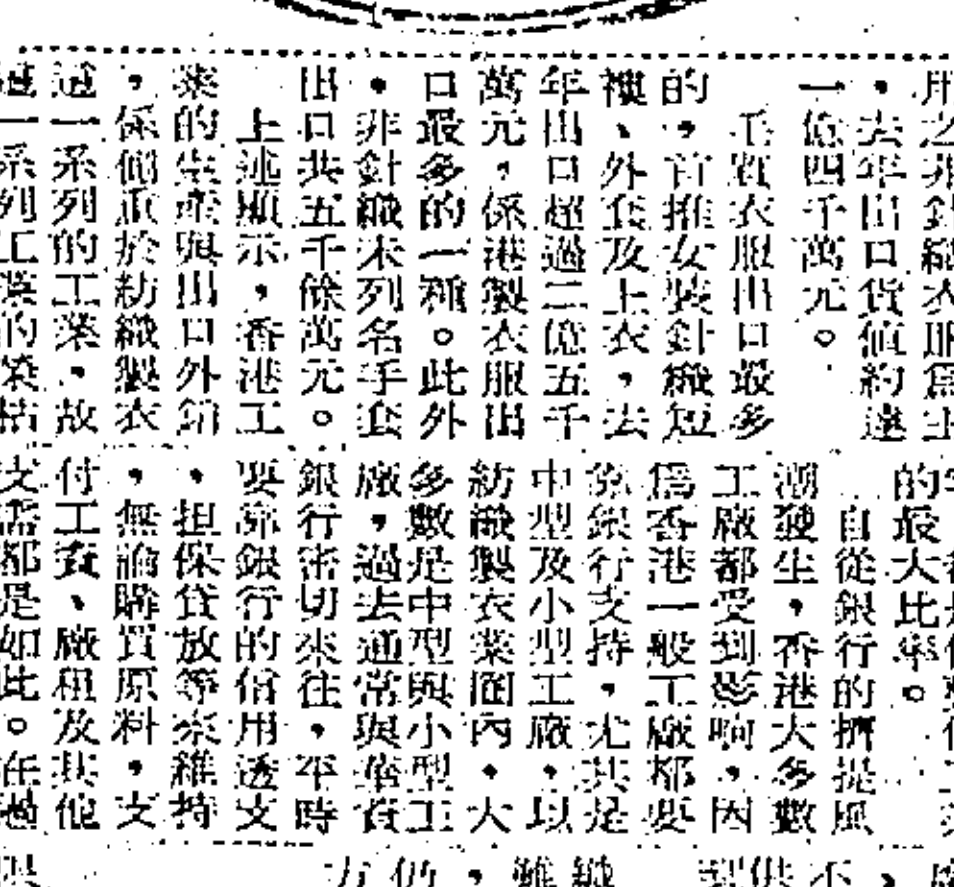 用之非針織衣服爲主
，去年出口貨值約達
一億四千萬元。
毛質衣服出口最多
的，首推女裝針織短
褸、外套及上衣，去
年出口超過二億五千
萬元，係港製衣服出
口最多的一種。此外
，非針織未列名手套
出口共五千餘萬元。
上述顯示，香港工
業的生產與出口外銷
，係側重於紡織製衣
通一系列的工業，故
一系列工業的榮枯
的最大比率。
自從銀行的擠提風
潮發生，香港大多數
工廠都受到影响，因
爲香港一般工廠都要
靠銀行支持，尤其是
中型及小型工廠，以
紡織製衣業圈內，大
多數是中型與小型工
廠，過去通常與華資
銀行密切來往，平時
要靠銀行的信用透支
，担保貸放等來維持
，無論購買原料，支
付工資、廠租及其他
支需都是如此。在過